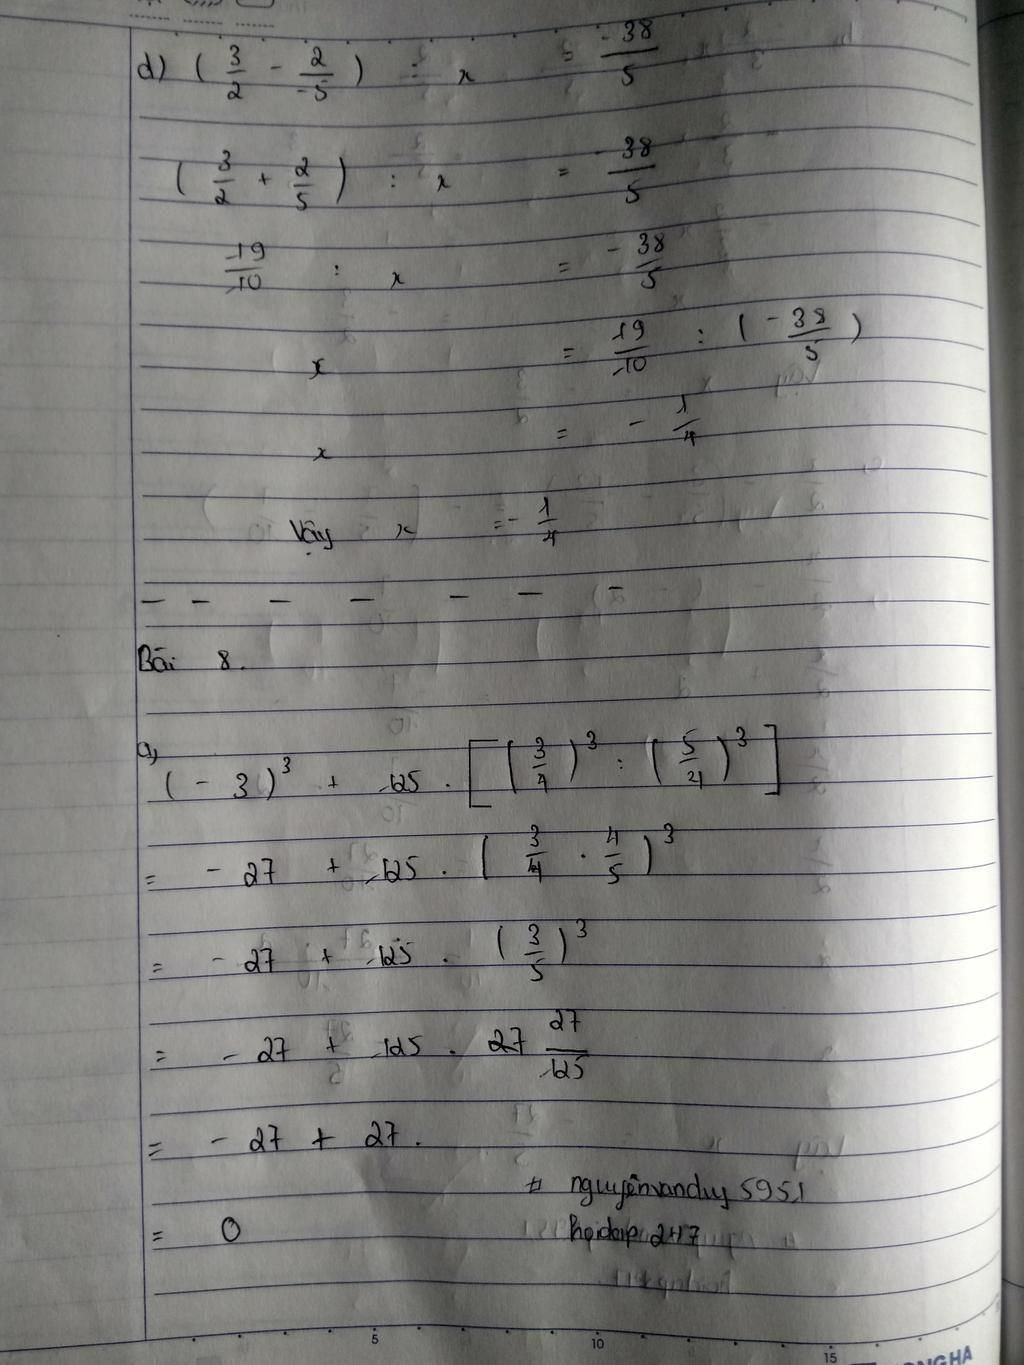 d) ( 3/2 - 2/-5 ) : x = -38/5
( 3/2 + 2/5 ) : x = -38/5
19/10 : x = -38/5
x = 19/10 : ( -38/5 )
x = - 1/4
Vậy x = - 1/4
Bài 8.
a, ( - 3 )³ + 125 . [ ( 3/4 )³ : ( 5/4 )³ ]
= - 27 + 125 . ( 3/4 . 4/5 )³
= - 27 + 125 . ( 3/5 )³
= - 27 + 125 . 27 27/125
= - 27 + 27 .
# nguyênvanduy 5951
= 0 hoidap 247
5 10 15
ONGHA